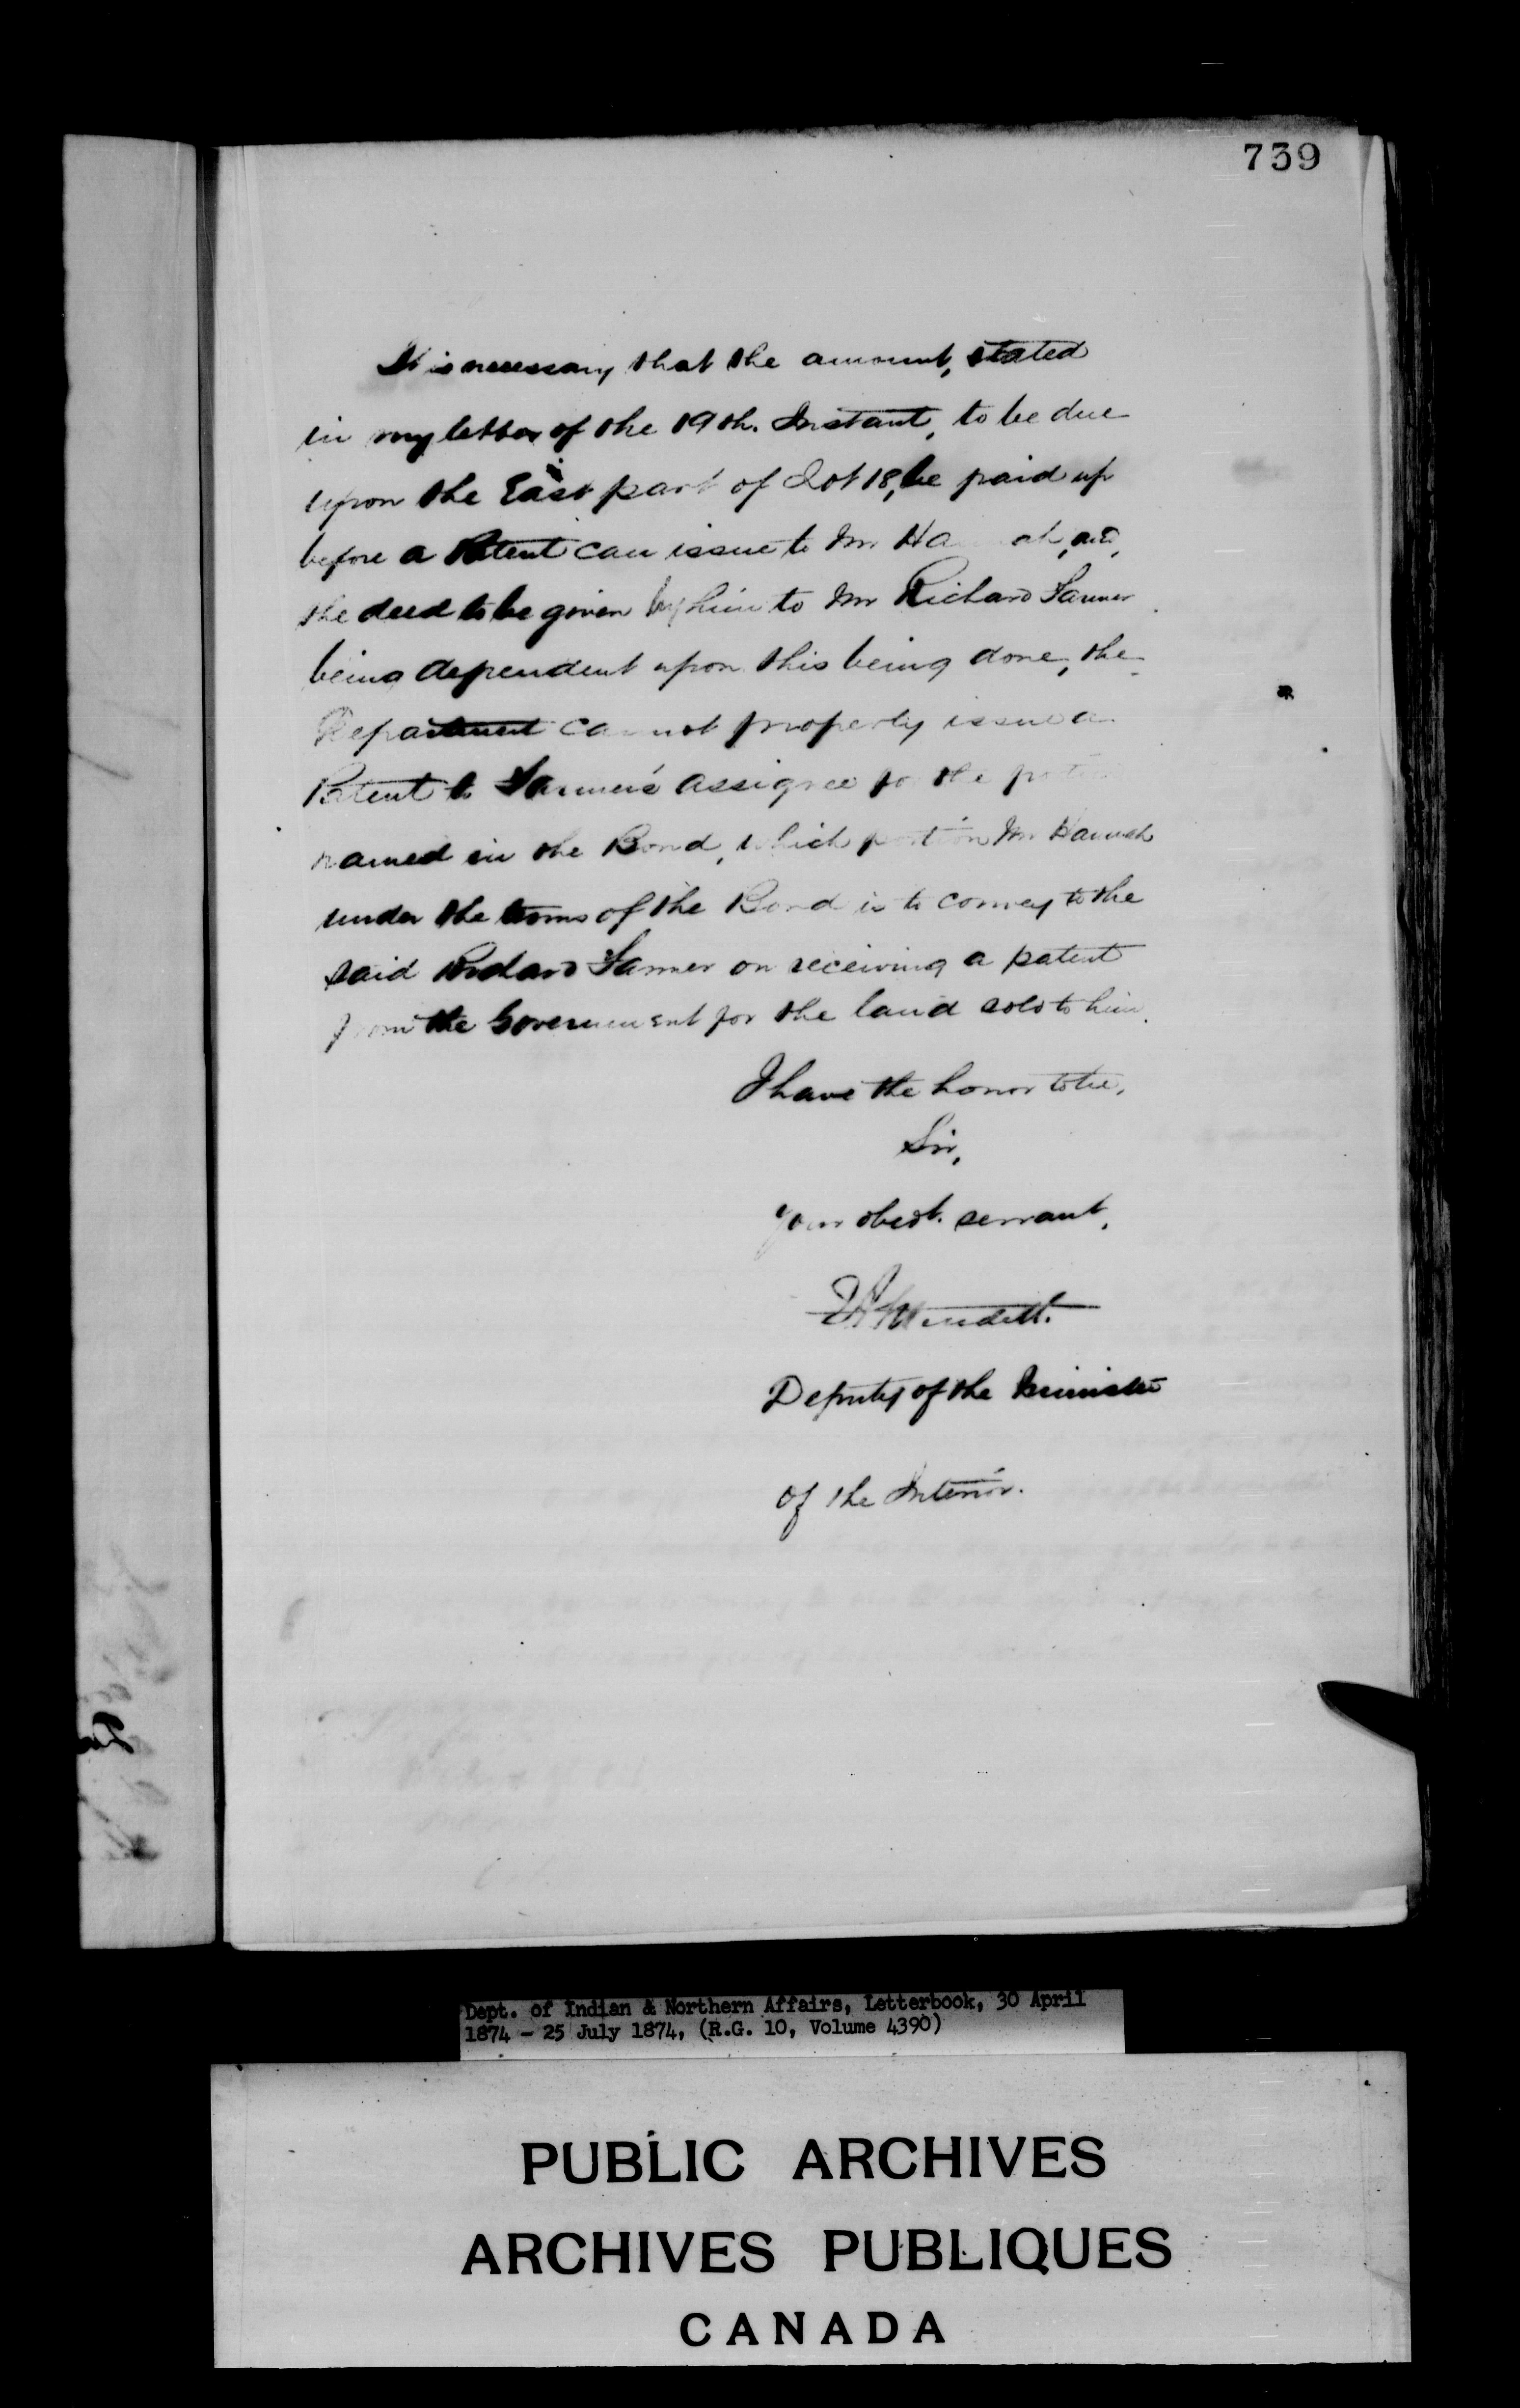 739
It is necessary that the amount, stated
in my letter of the 19th. Instant, to be due
upon the East part of Lot 18, be paid up
before a Patent can issue to Mr. Ha ah, and,
the deed to be given by him to Mr Richard Farmer
being dependent upon this being done, the
Department cannot properly issue a
Patent to Farmer's assignee for the portion
named in the Bond, which portion Mr. Hannah
under the terms of the Bond is to convey to the
said Richard Farmer on receiving a patent
from the Government for the land sold to him.
I have the honor to be,
Sir,
Your obedt. servant,
Deputy of the Minister
of the Interior.
Dept. of Indian & Northern Affairs, Letterbook, 30 April
1874 - 25 July 1874, (R.G. 10, Volume 4390)
PUBLIC ARCHIVES
ARCHIVES PUBLIQUES
CANADA